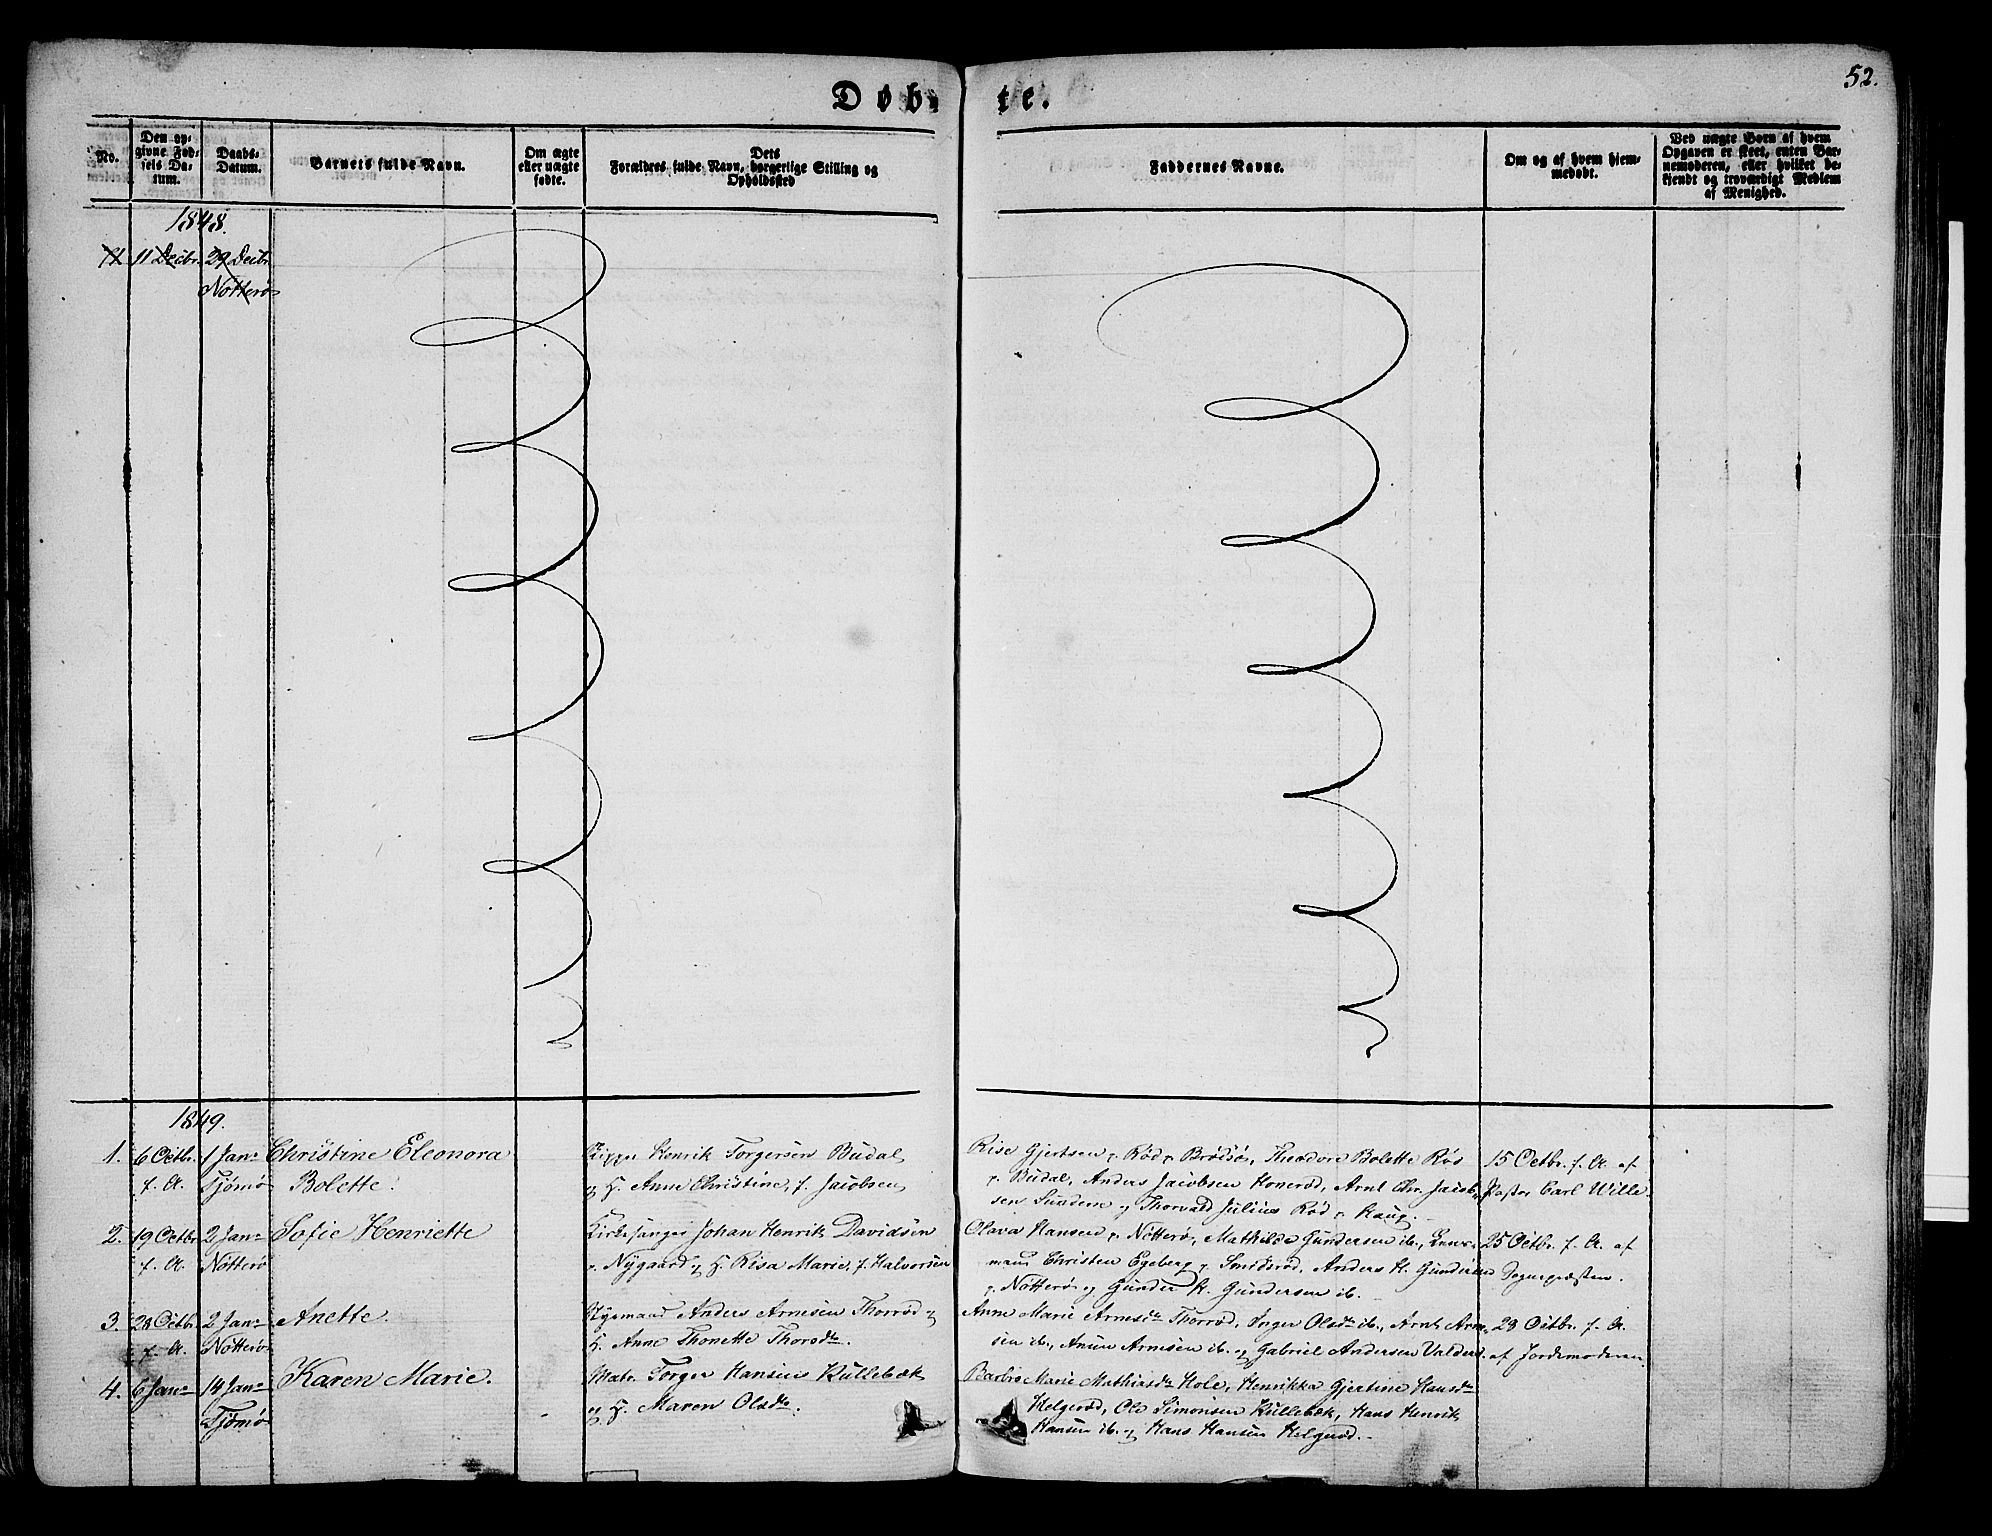 52.
Døb- te.
No.
Den opgivne Fødsels Datum.
Daabs-Datum.
Barnets fulde Navn.
Om ægte eller uægte fødte.
Dets Forældres fulde Navn, borgerlige Stilling og Opholdssted
Faddernes Navne.
Om og af hvem hjemmedøbt.
Ved uægte Børn af hvem Opgaven er skeet, enten Barnemoderen, eller hvilket bekjendt og troværdigt Medlem af Menighed.
1848.
11 Decbr. 29 Decbr.
Nøtterø
1849.
1. 6 Octbr. 1 Jan. Christine Eleonora
f. A. Tjømø Bolette.
Henrik Torgersen Budal
og H. Anne Christine, f. Jacobsen
Rise Gjertsen Rød Brødsø, Theodore Bolette Røs
Budal, Anders Jacobsen Honerød, Arnt Chr. Jacob-
sen Sundene og Thorvald Julius Rød Haug.
15 Octbr. f. A. af
Pastor Carl Wille.
2. 19 Octbr. 2 Jan. Sofie Henriette
f. A. Nøtterø
Kirkesanger Johan Henrik Davidsen
Nygaard og H. Risa Marie, f. Halvorsen
Olava Hansen Nøtterø, Mathilde Gundersen ib.,
Christen Egeberg Smidsrød, Anders H. Gundersen
Nøtterø og Gunder H. Gundersen ib.
25 Octbr. f. A. af
Sognepræsten.
3. 28 Octbr. 2 Jan. Anette.
f. A. Nøtterø
Anders Arnesen Thorrød og
H. Anne Thonette Thorsdtr.
Anne Marie Arnesdtr Thorrød, Inger Olsdtr ib., Arnt Arne-
sen ib., Arnesen ib. og Gabriel Andersen
28 Octbr. f. A.
af Jordemoderen
4. 6 Jan. 14 Jan. Karen Marie.
Tjømø
Matr. Torger Hansen Kullebæk
og H. Maren Olsdtr.
Barbro Marie Mathiasdtr Hole, Henrikka Gjertine Hansdtr
Helgerød, Ole Simonsen Kullebæk, Hans Henrik
Hansen ib. og Hans Hansen Helgerød.